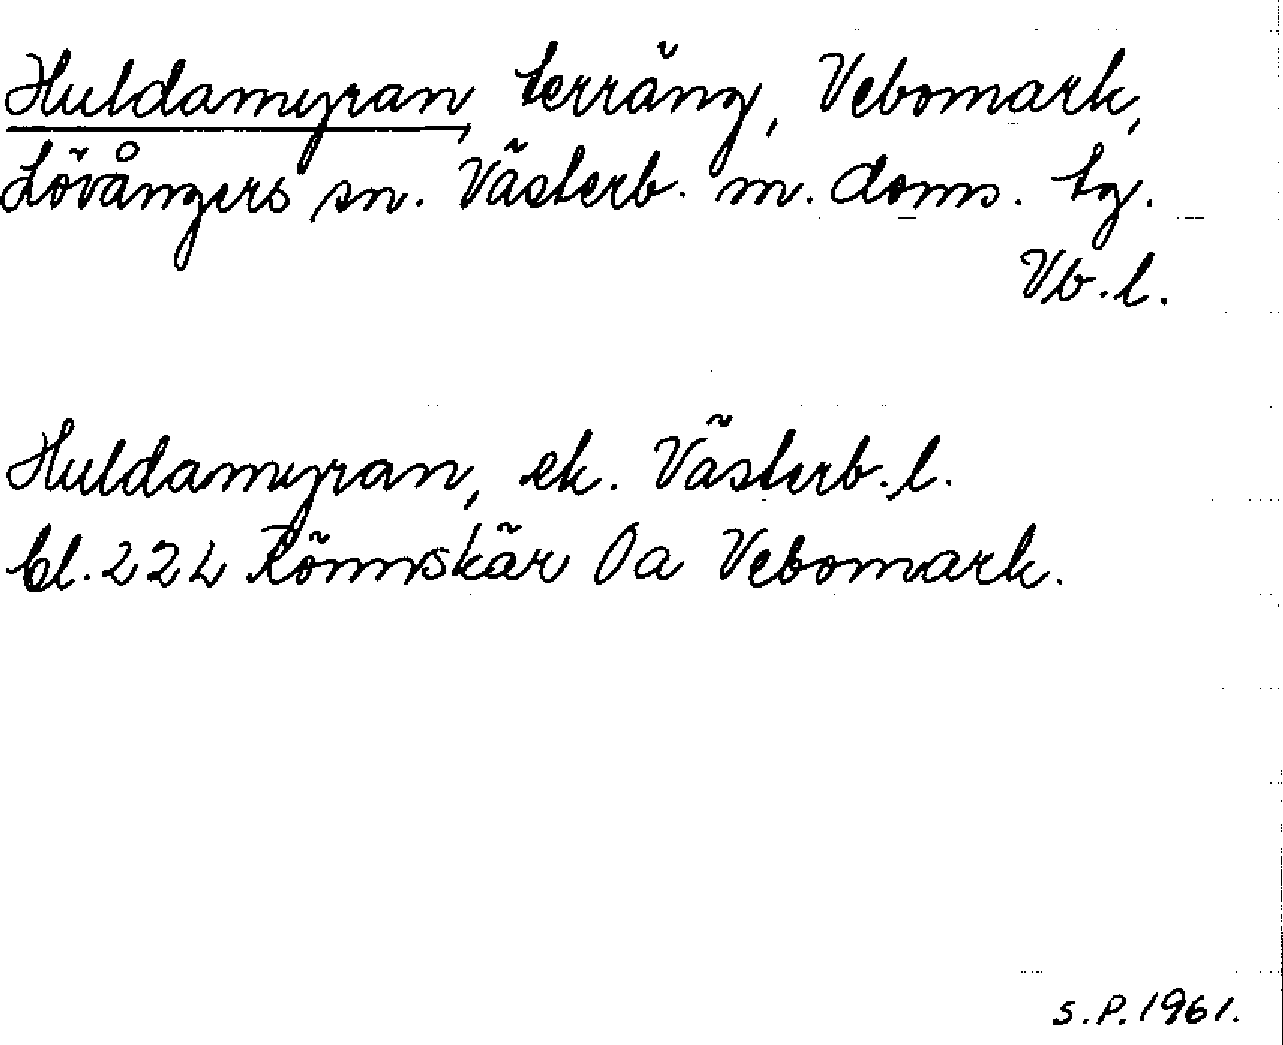 Huldamyran, terräng, Vebomark,
Lövångers sn. Västerb. m. doms. tg.
Vb. l.
Huldamyran, ek. Västerb. l.
bl. 22 L Rönnskär Oa Vebomark.
S.P. 1961.